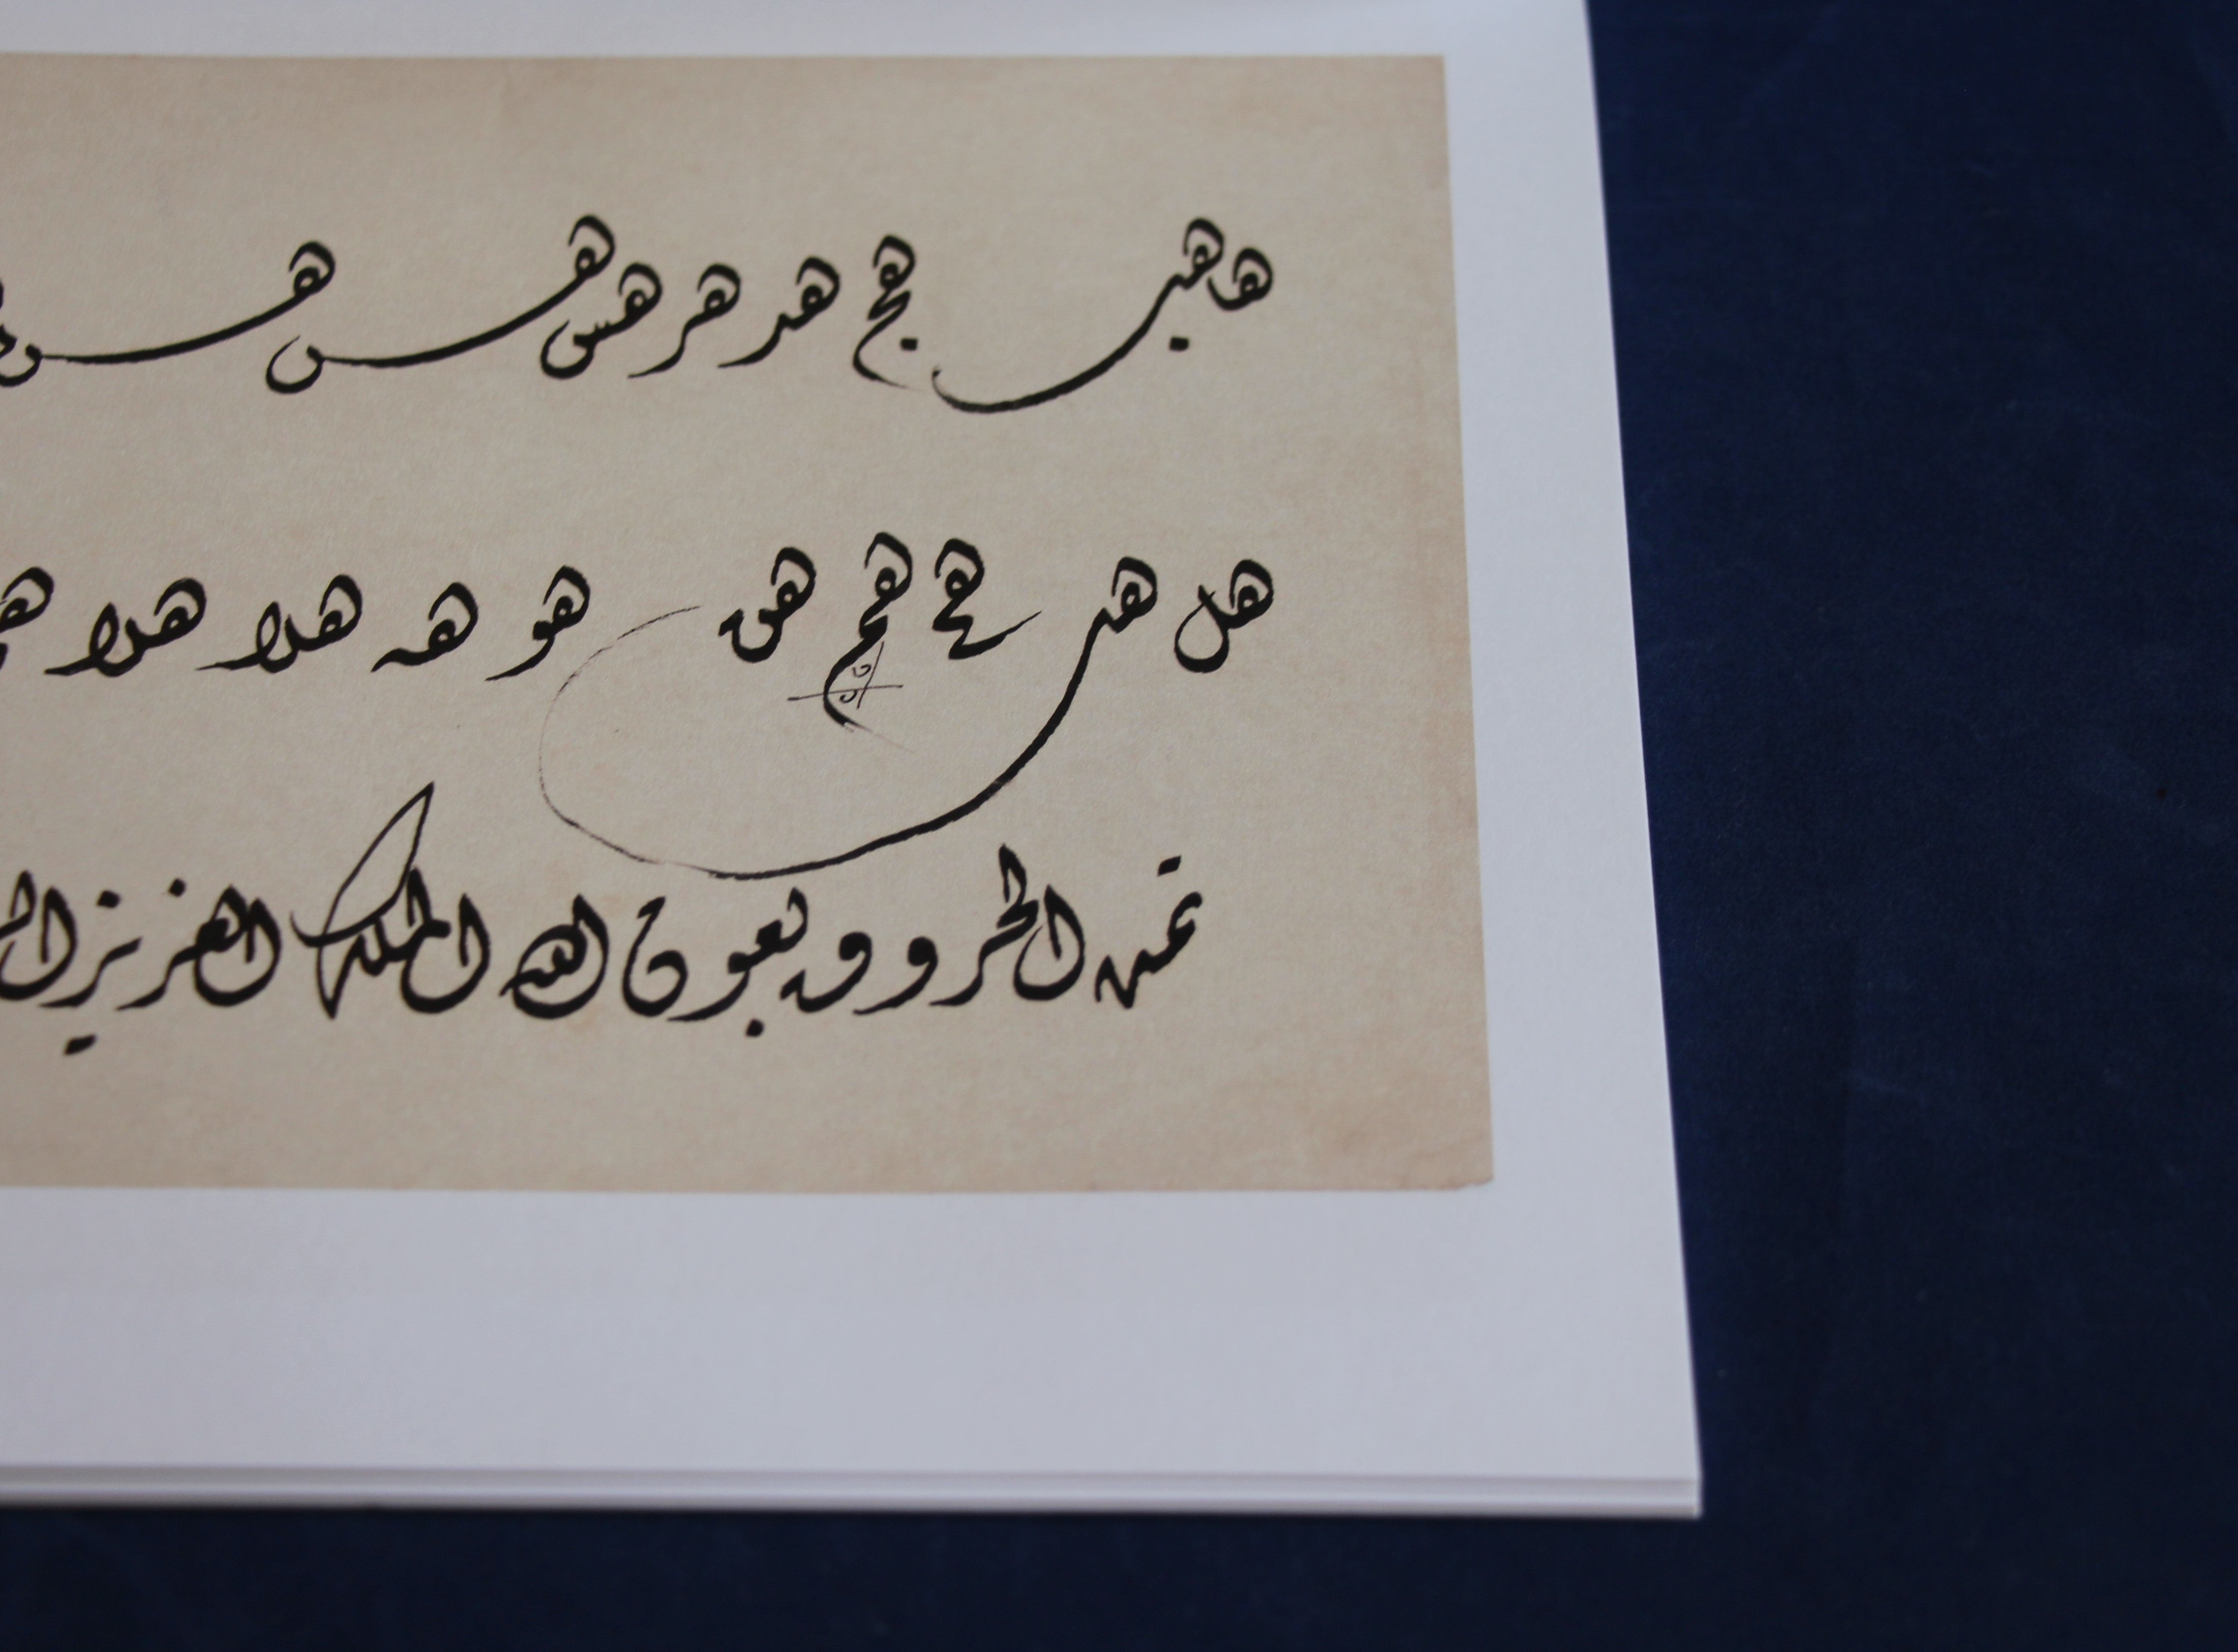 ها هب هج هد هر هس هس هس
هل هم هم هم هن هو هه هلا هلا
تمت الحروف بعون الله الملك العزيز